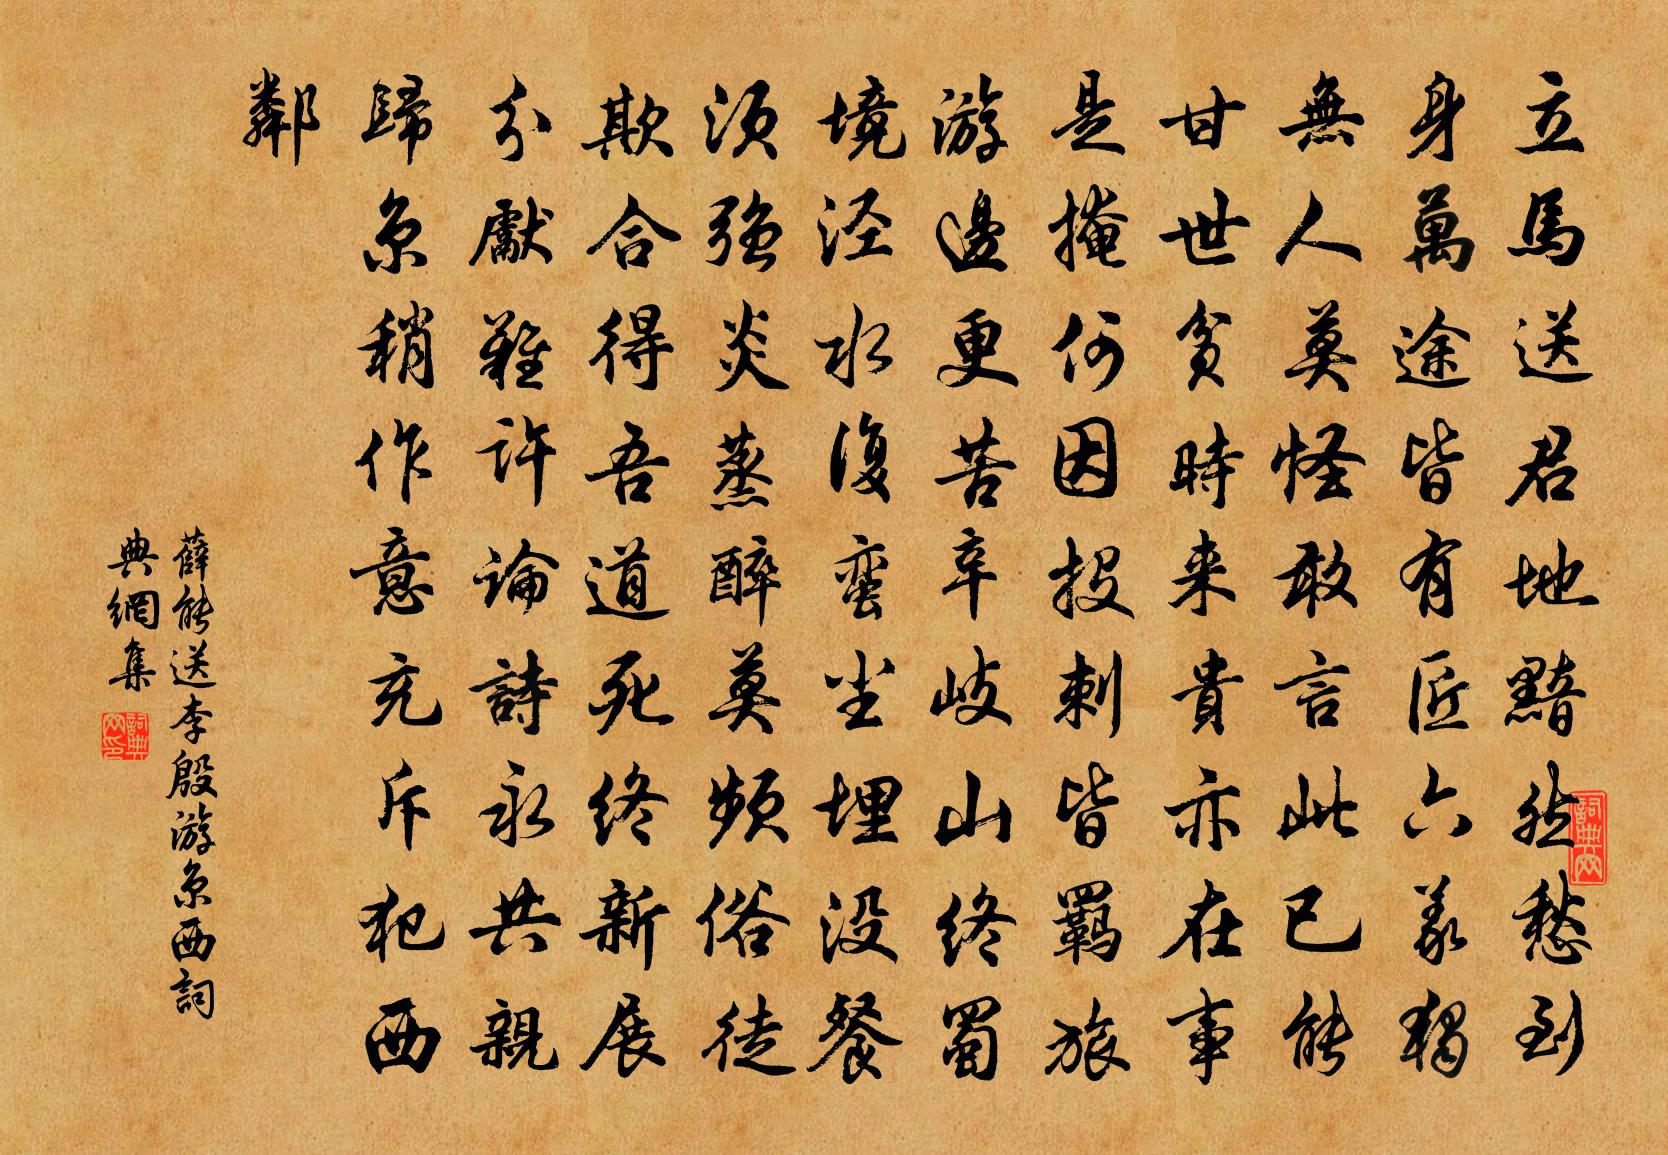 立馬送君地黯然愁到
身萬途皆有匠六義獨
無人莫怪敢言此已能
甘世貧時来貴亦在事
是掩何因投刺皆羈旅
游邊更苦辛岐山終蜀
境涇水復蛮尘埋没餐
须強炎蒸醉莫頻俗徒
欺合得吾道死終新展
分獻難許論詩永共親
歸京稍作意充斥犯西
鄰
薛能送李殷游京西詞
典網集
詞典网印
詞典网